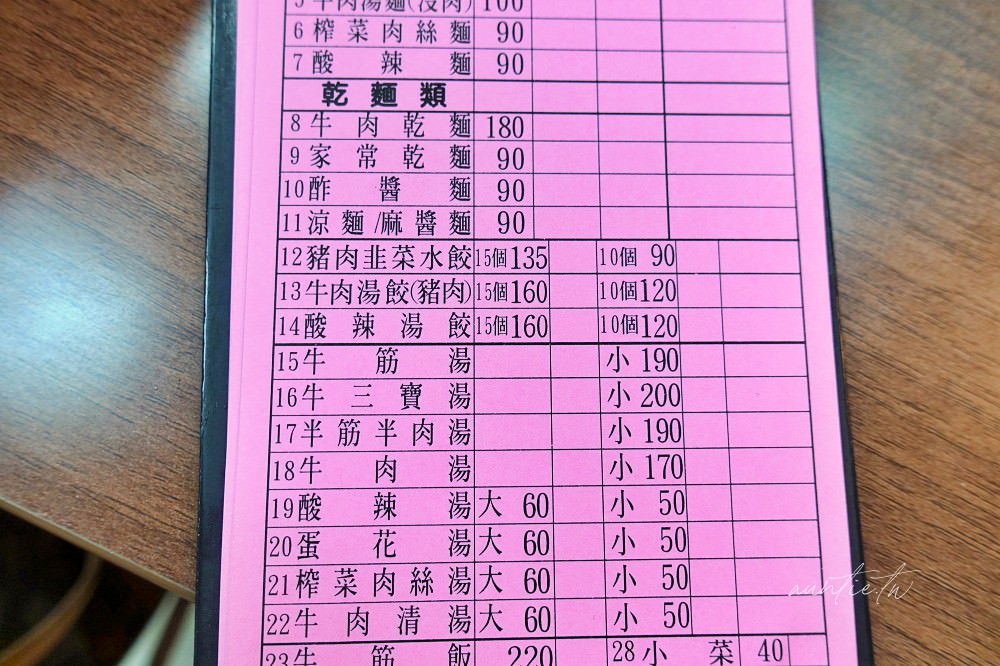 5 牛肉湯麵(沒肉) 100
6 榨菜肉絲麵 90
7 酸辣麵 90
乾麵類
8 牛肉乾麵 180
9 家常乾麵 90
10 酢醬麵 90
11 涼麵/麻醬麵 90
12 豬肉韭菜水餃 15個 135 10個 90
13 牛肉湯餃(豬肉) 15個 160 10個 120
14 酸辣湯餃 15個 160 10個 120
15 牛筋湯 小 190
16 牛三寶湯 小 200
17 半筋半肉湯 小 190
18 牛肉湯 小 170
19 酸辣湯 大 60 小 50
20 蛋花湯 大 60 小 50
21 榨菜肉絲湯 大 60 小 50
22 牛肉清湯 大 60 小 50
23 牛筋飯 220 28 小菜 40
auntie.tw